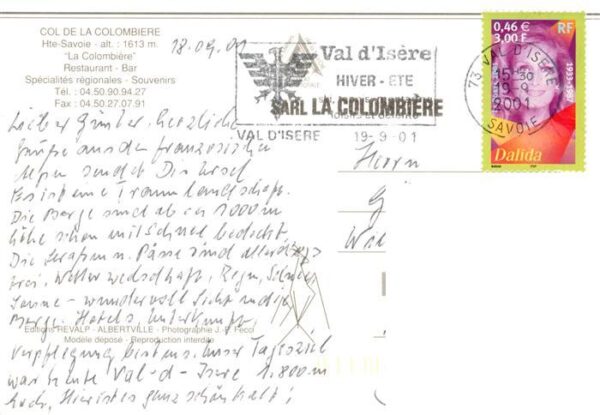 COL DE LA COLOMBIÈRE
Hte-Savoie - alt. : 1613 m.
"La Colombière"
Restaurant - Bar
Spécialités régionales - Souvenirs
Tél. : 04.50.90.94.27
Fax : 04.50.27.07.91
18.09.01
Lieber Günter, herzliche
Grüße aus den französischen
Alpen sendet Dir
Es ist eine Traumlandschaft.
Die Berge sind ab ca 2000 m
Höhe schon mit Schnee bedeckt
Die Straßen u. Pässe sind allerdings
frei. Wetter wechselhaft, Regen, Schnee
Sonne - wundervoll Sicht in die
Berge. Hotels, Unterkunft,
Editions REVALP - ALBERTVILLE - Photographie J.-F. Pecci
Modèle déposé - Reproduction interdite
Verpflegung bestens. Unser Tagesziel
war heute Val-d-Isere 1.800 m
hoch, Hier ist es ganz schön kalt!
Val d'Isère
HIVER - ETE
SARL LA COLOMBIÈRE
VAL D'ISERE 19-9-01
73 VAL D'ISÈRE
15-30
19-9
2001
SAVOIE
0,46 €
3,00 F
RF
1933-1987
Dalida
Herrn